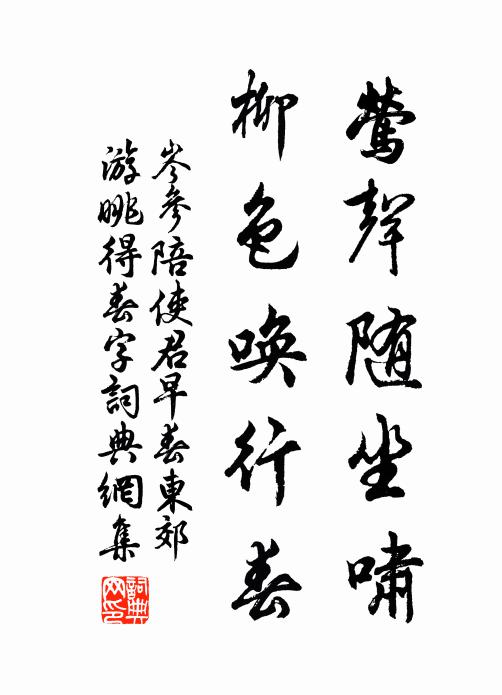 鶯聲随坐嘯
柳色喚行春
岑參陪使君早春東郊
游眺得春字詞典網集
詞典
网印